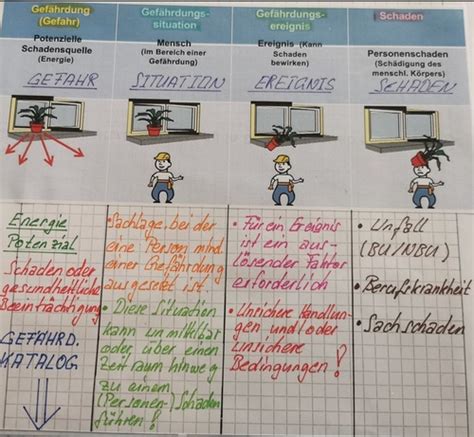 Gefährdung
(Gefahr)
Potenzielle
Schadensquelle
(Energie)
GEFAHR
Energie
Potenzial
Schaden oder
gesundheitliche
Beeinträchtigung
GEFÄHRD.
KATALOG
Gefährdungs-
situation
Mensch
(Im Bereich einer
Gefährdung)
SITUATION
• Sachlage, bei der
eine Person mind.
einer Gefährdung
ausgesetzt ist.
• Diese Situation
kann unmittelbar
oder über einen
Zeitraum hinweg
zu einem
(Personen-) Schaden
führen!
Gefährdungs-
ereignis
Ereignis (Kann
Schaden
bewirken)
EREIGNIS
• Für ein Ereignis
ist ein aus-
lösender Faktor
erforderlich
• Unsichere Handlun-
gen und/oder
unsichere
Bedingungen!
Schaden
Personenschaden
(Schädigung des
menschl. Körpers)
SCHADEN
• Unfall
(BU/NBU)
• Berufskrankheit
• Sachschaden